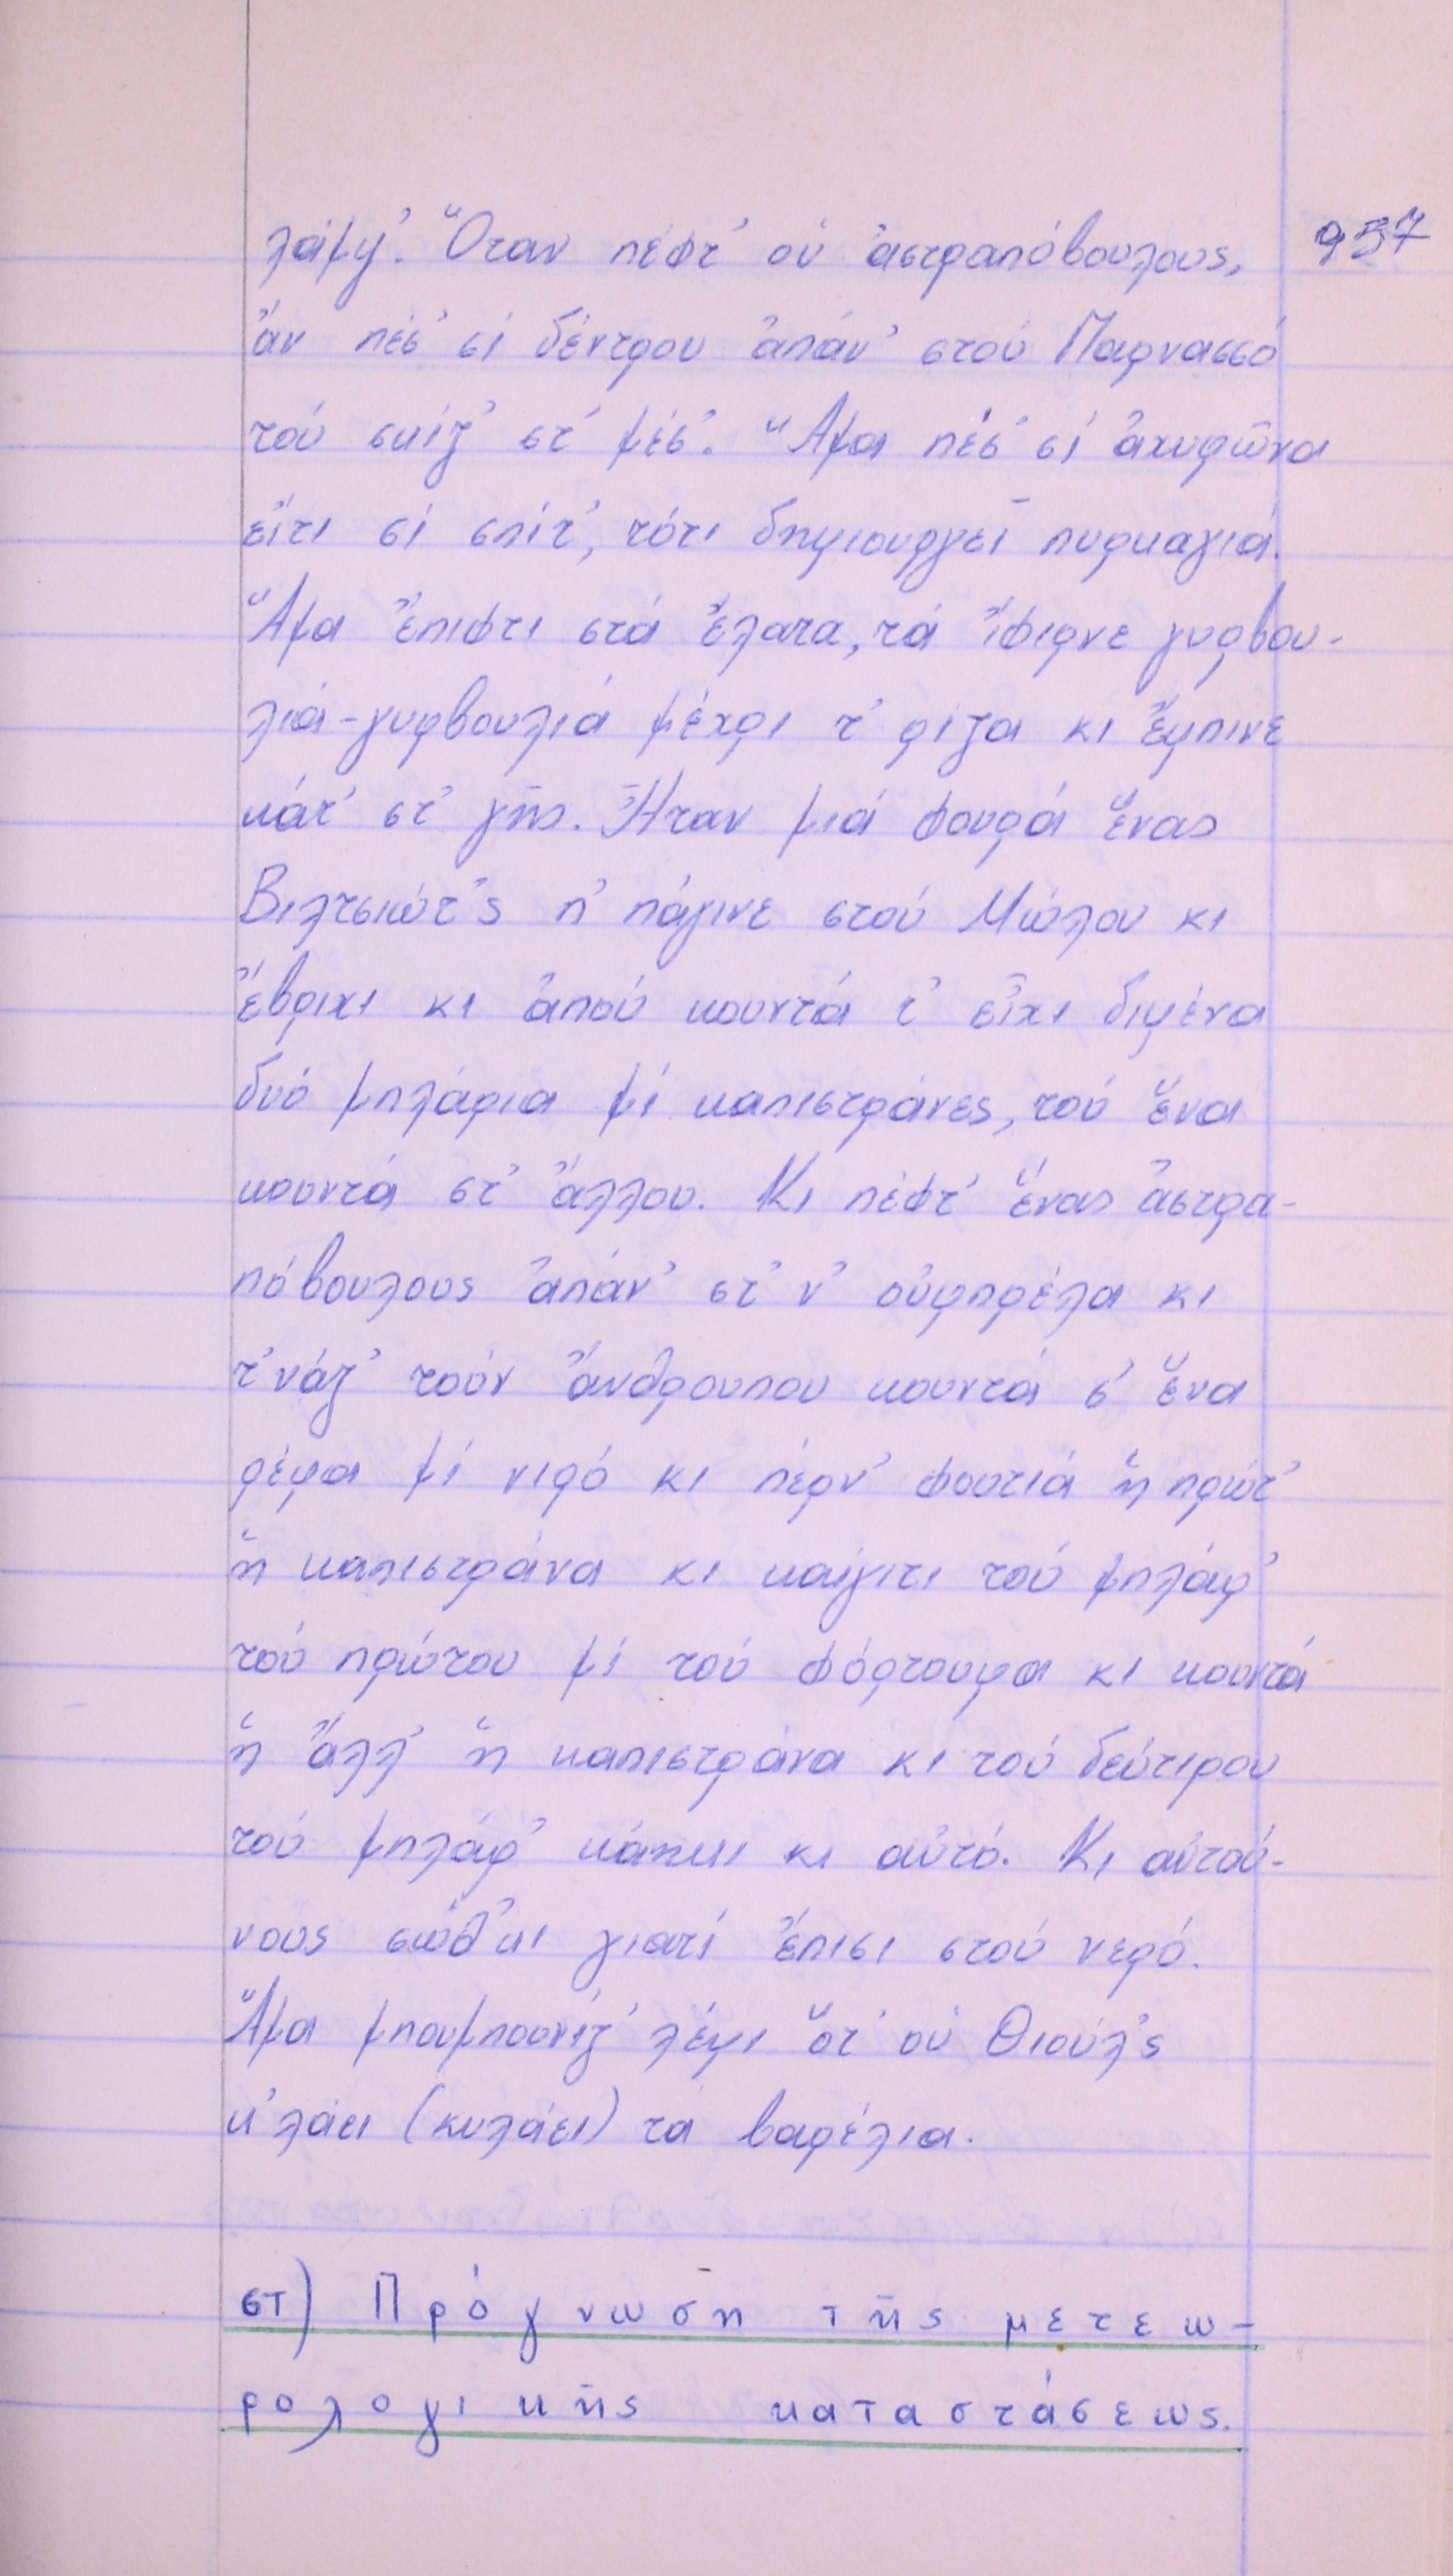 957
λάμψ᾿. Ὅταν πέφτ᾿ οὑ ἀστραπόβουλους,
ἄν πέσ᾿ σί δέντρου ἀπάν᾿ στού Παρνασσό
τού σκίζ᾿ στ᾿ μέσ᾿. Ἅμα πέσ᾿ σί ἀχυρῶνα
εἴτι σί σπίτ᾿, τότι δημιουργεῖ πυρκαγιά.
Ἅμα ἔπιφτι στά ἔλατα, τά ἔφιρνε γυρβου-
λιά-γυρβουλιά μέχρι τ᾿ ρίζα κι ἔμπινε
κάτ᾿ στ᾿ γῆς. Ἦταν μιά φουρά ἕνας
Βιλτσιώτ᾿ς π᾿ πάγινε στού Μώλου κι
ἔβριχι κι ἀπού κουντά τ᾿ εἶχι διμένα
δυό μπλάρια μί καπιστράνες, τού ἕνα
κουντά στ᾿ ἄλλου. Κι πέφτ᾿ ἕνας ἀστρα-
πόβουλους ἀπάν᾿ στ᾿ ν᾿ οὑμπρέλα κι
τ᾿νάζ᾿ τούν ἄνθρουπου κουντά σ᾿ ἕνα
ρέμα μί νιρό κι πέρν᾿ φουτιά ἡ πρώτ᾿
ἡ καπιστράνα κι καίγιτι τού μπλάρ᾿
τού πρώτου μί τού φόρτουμα κι κουντά
ἡ ἄλλ᾿ ἡ καπιστράνα κι τού δεύτιρου
τού μπλάρ᾿ κάηκι κι αὐτό. Κι αὐτού-
νους σώθ᾿κι γιατί ἔπισι στού νερό.
Ἅμα μπουμπουνίζ᾿ λέμι ὅτ᾿ οὑ Θιούλ᾿ς
κ᾿λάει (κυλάει) τά βαρέλια.
στ) Πρόγνωση τῆς μετεω-
ρολογικῆς καταστάσεως.